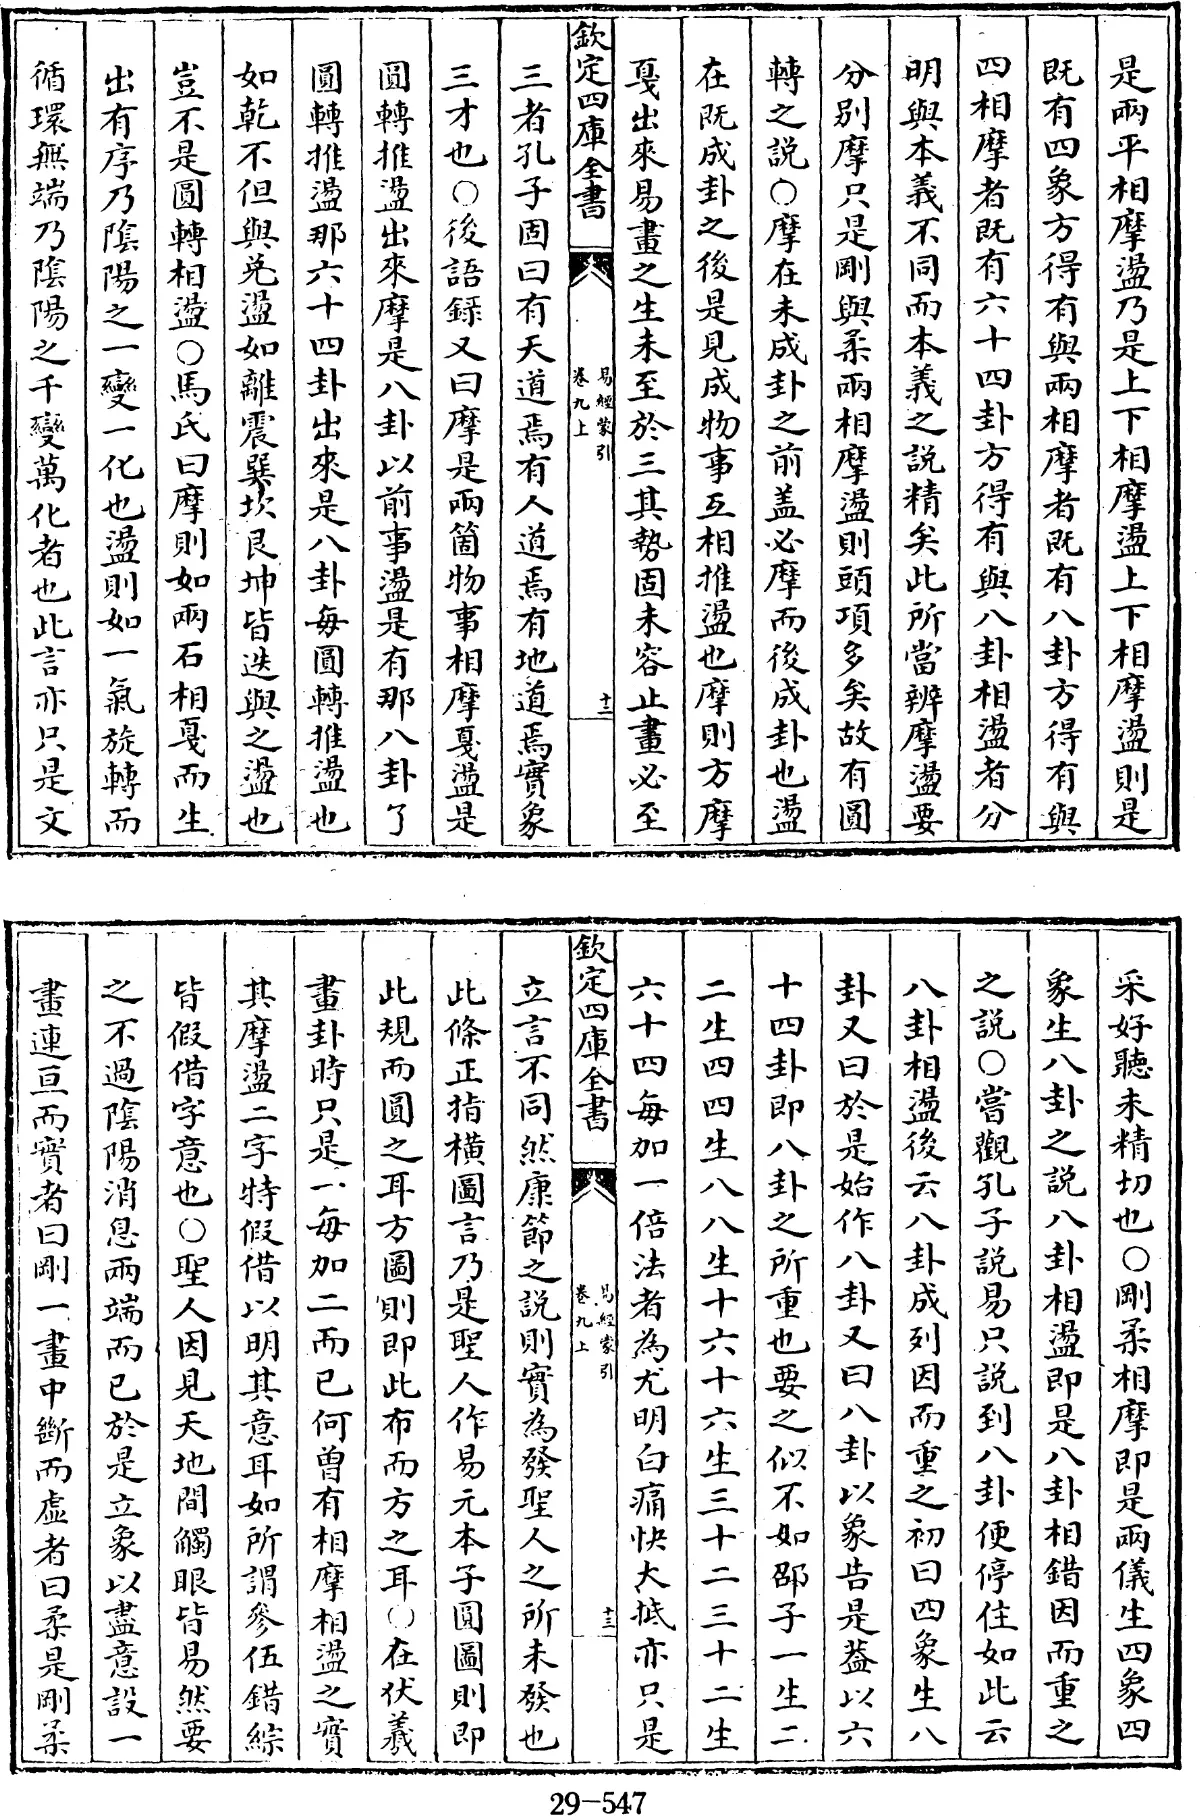 是兩平相摩盪乃是上下相摩盪上下相摩盪則是
既有四象方得有與兩相摩者既有八卦方得有與
四相摩者既有六十四卦方得有與八卦相盪者分
明與本義不同而本義之說精矣此所當辨摩盪要
分別摩只是剛與柔兩相摩盪則頭項多矣故有圓
轉之說○摩在未成卦之前盖必摩而後成卦也盪
在既成卦之後是見成物事互相推盪也摩則方摩
戛出來易畫之生未至於三其勢固未容止畫必至
欽定四庫全書
易經蒙引
卷九上
十二
三者孔子固曰有天道焉有人道焉有地道焉實象
三才也○後語録又曰摩是兩箇物事相摩戛盪是
圓轉推盪出來摩是八卦以前事盪是有那八卦了
圓轉推盪那六十四卦出來是八卦每圓轉推盪也
如乾不但與兊盪如離震巽坎艮坤皆迭與之盪也
豈不是圓轉相盪○馬氏曰摩則如兩石相戛而生
出有序乃隂陽之一變一化也盪則如一氣旋轉而
循環無端乃隂陽之千變萬化者也此言亦只是文
采好聽未精切也○剛柔相摩即是兩儀生四象四
象生八卦之說八卦相盪即是八卦相錯因而重之
之說○嘗觀孔子說易只說到八卦便停住如此云
八卦相盪後云八卦成列因而重之初曰四象生八
卦又曰於是始作八卦又曰八卦以象告是葢以六
十四卦即八卦之所重也要之似不如邵子一生二
二生四四生八八生十六十六生三十二三十二生
六十四每加一倍法者為尤明白痛快大抵亦只是
欽定四庫全書
易經蒙引
卷九上
十三
立言不同然康節之說則實為發聖人之所未發也
此條正指横圖言乃是聖人作易元本子圓圖則即
此規而圓之耳方圖則即此布而方之耳○在伏羲
畫卦時只是一每加二而已何曽有相摩相盪之實
其摩盪二字特假借以明其意耳如所謂參伍錯綜
皆假借字意也○聖人因見天地間觸眼皆易然要
之不過隂陽消息兩端而已於是立象以盡意設一
畫連亘而實者曰剛一畫中斷而虛者曰柔是剛柔
29-547